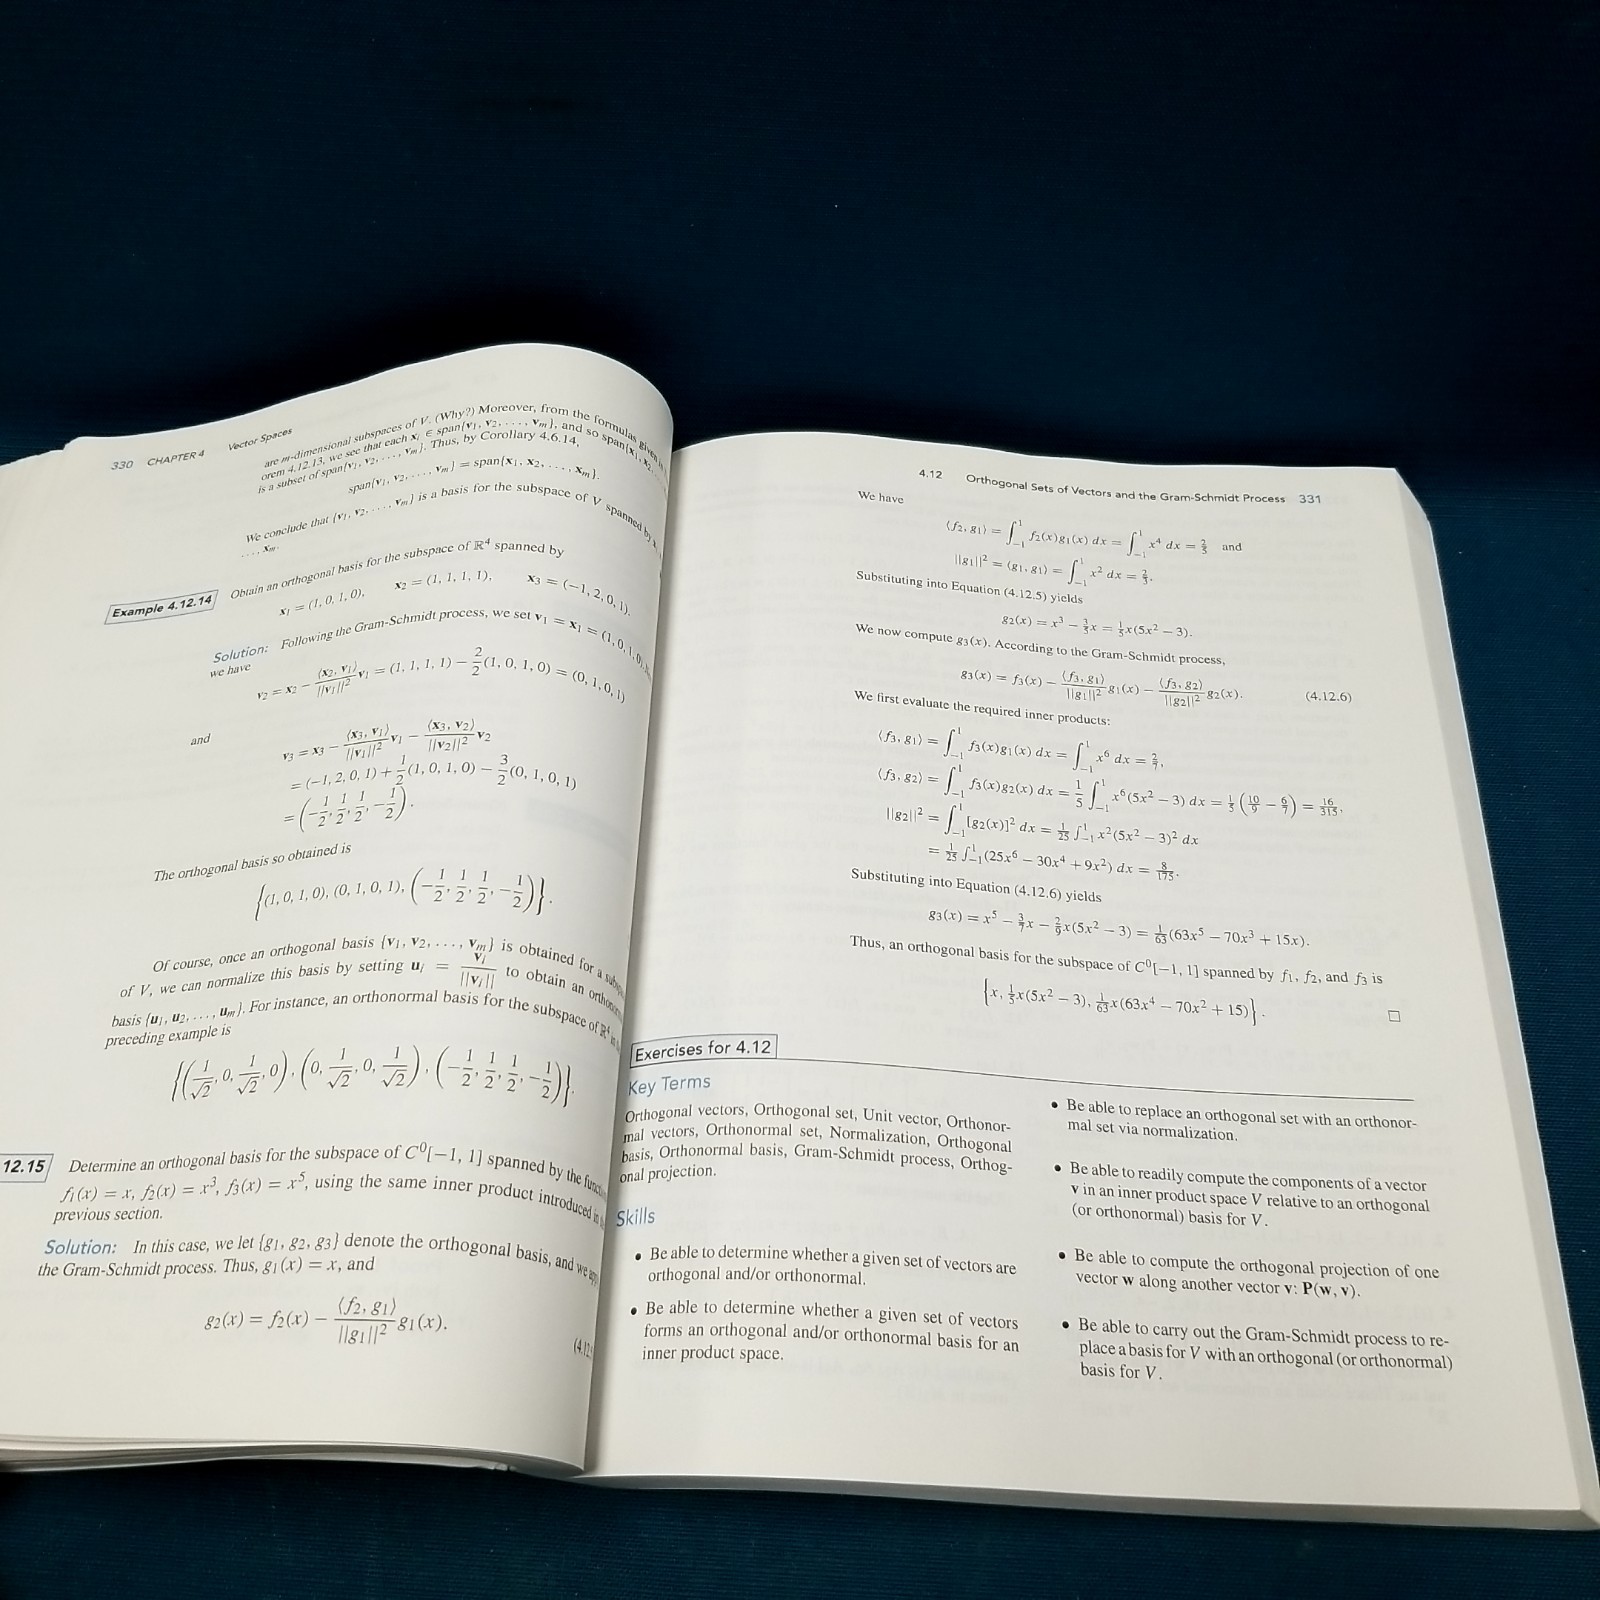 330 CHAPTER 4 Vector Spaces
are m-dimensional subspaces of V. (Why?) Moreover, from the formulas given in
orem 4.12.13, we see that each xᵢ ∈ span{v₁, v₂, . . . , vₘ}, and so span{x₁, x₂,
is a subset of span{v₁, v₂, . . . , vₘ}. Thus, by Corollary 4.6.14,
span{v₁, v₂, . . . , vₘ} = span{x₁, x₂, . . . , xₘ}.
We conclude that {v₁, v₂, . . . , vₘ} is a basis for the subspace of V spanned by
. . . , xₘ.
Example 4.12.14 Obtain an orthogonal basis for the subspace of ℝ⁴ spanned by
x₁ = (1, 0, 1, 0), x₂ = (1, 1, 1, 1), x₃ = (−1, 2, 0, 1).
Solution: Following the Gram-Schmidt process, we set v₁ = x₁ = (1, 0, 1, 0).
we have
v₂ = x₂ − (⟨x₂, v₁⟩/||v₁||²)v₁ = (1, 1, 1, 1) − 2/2(1, 0, 1, 0) = (0, 1, 0, 1)
and
v₃ = x₃ − (⟨x₃, v₁⟩/||v₁||²)v₁ − (⟨x₃, v₂⟩/||v₂||²)v₂
= (−1, 2, 0, 1) + 1/2(1, 0, 1, 0) − 3/2(0, 1, 0, 1)
= (−1/2, 1/2, 1/2, −1/2).
The orthogonal basis so obtained is
{(1, 0, 1, 0), (0, 1, 0, 1), (−1/2, 1/2, 1/2, −1/2)}.
Of course, once an orthogonal basis {v₁, v₂, . . . , vₘ} is obtained for a
of V, we can normalize this basis by setting uᵢ = vᵢ/||vᵢ|| to obtain an
basis {u₁, u₂, . . . , uₘ}. For instance, an orthonormal basis for the subspace of ℝ⁴
preceding example is
{(1/√2, 0, 1/√2, 0), (0, 1/√2, 0, 1/√2), (−1/2, 1/2, 1/2, −1/2)}.
12.15 Determine an orthogonal basis for the subspace of C⁰[−1, 1] spanned by the
f₁(x) = x, f₂(x) = x³, f₃(x) = x⁵, using the same inner product introduced in
previous section.
Solution: In this case, we let {g₁, g₂, g₃} denote the orthogonal basis, and we
the Gram-Schmidt process. Thus, g₁(x) = x, and
g₂(x) = f₂(x) − (⟨f₂, g₁⟩/||g₁||²)g₁(x).
(4.12.
4.12 Orthogonal Sets of Vectors and the Gram-Schmidt Process 331
We have
⟨f₂, g₁⟩ = ∫₋₁¹ f₂(x)g₁(x) dx = ∫₋₁¹ x⁴ dx = 2/5 and
||g₁||² = ⟨g₁, g₁⟩ = ∫₋₁¹ x² dx = 2/3.
Substituting into Equation (4.12.5) yields
g₂(x) = x³ − 3/5x = 1/5x(5x² − 3).
We now compute g₃(x). According to the Gram-Schmidt process,
g₃(x) = f₃(x) − (⟨f₃, g₁⟩/||g₁||²)g₁(x) − (⟨f₃, g₂⟩/||g₂||²)g₂(x). (4.12.6)
We first evaluate the required inner products:
⟨f₃, g₁⟩ = ∫₋₁¹ f₃(x)g₁(x) dx = ∫₋₁¹ x⁶ dx = 2/7,
⟨f₃, g₂⟩ = ∫₋₁¹ f₃(x)g₂(x) dx = 1/5 ∫₋₁¹ x⁶(5x² − 3) dx = 1/5 (10/9 − 6/7) = 16/315,
||g₂||² = ∫₋₁¹ [g₂(x)]² dx = 1/25 ∫₋₁¹ x²(5x² − 3)² dx
= 1/25 ∫₋₁¹(25x⁶ − 30x⁴ + 9x²) dx = 8/175.
Substituting into Equation (4.12.6) yields
g₃(x) = x⁵ − 3/7x − 2/9x(5x² − 3) = 1/63(63x⁵ − 70x³ + 15x).
Thus, an orthogonal basis for the subspace of C⁰[−1, 1] spanned by f₁, f₂, and f₃ is
{x, 1/5x(5x² − 3), 1/63x(63x⁴ − 70x² + 15)}. □
Exercises for 4.12
Key Terms
Orthogonal vectors, Orthogonal set, Unit vector, Orthonor-
mal vectors, Orthonormal set, Normalization, Orthogonal
basis, Orthonormal basis, Gram-Schmidt process, Orthog-
onal projection.
Skills
• Be able to determine whether a given set of vectors are
orthogonal and/or orthonormal.
• Be able to determine whether a given set of vectors
forms an orthogonal and/or orthonormal basis for an
inner product space.
• Be able to replace an orthogonal set with an orthonor-
mal set via normalization.
• Be able to readily compute the components of a vector
v in an inner product space V relative to an orthogonal
(or orthonormal) basis for V.
• Be able to compute the orthogonal projection of one
vector w along another vector v: P(w, v).
• Be able to carry out the Gram-Schmidt process to re-
place a basis for V with an orthogonal (or orthonormal)
basis for V.